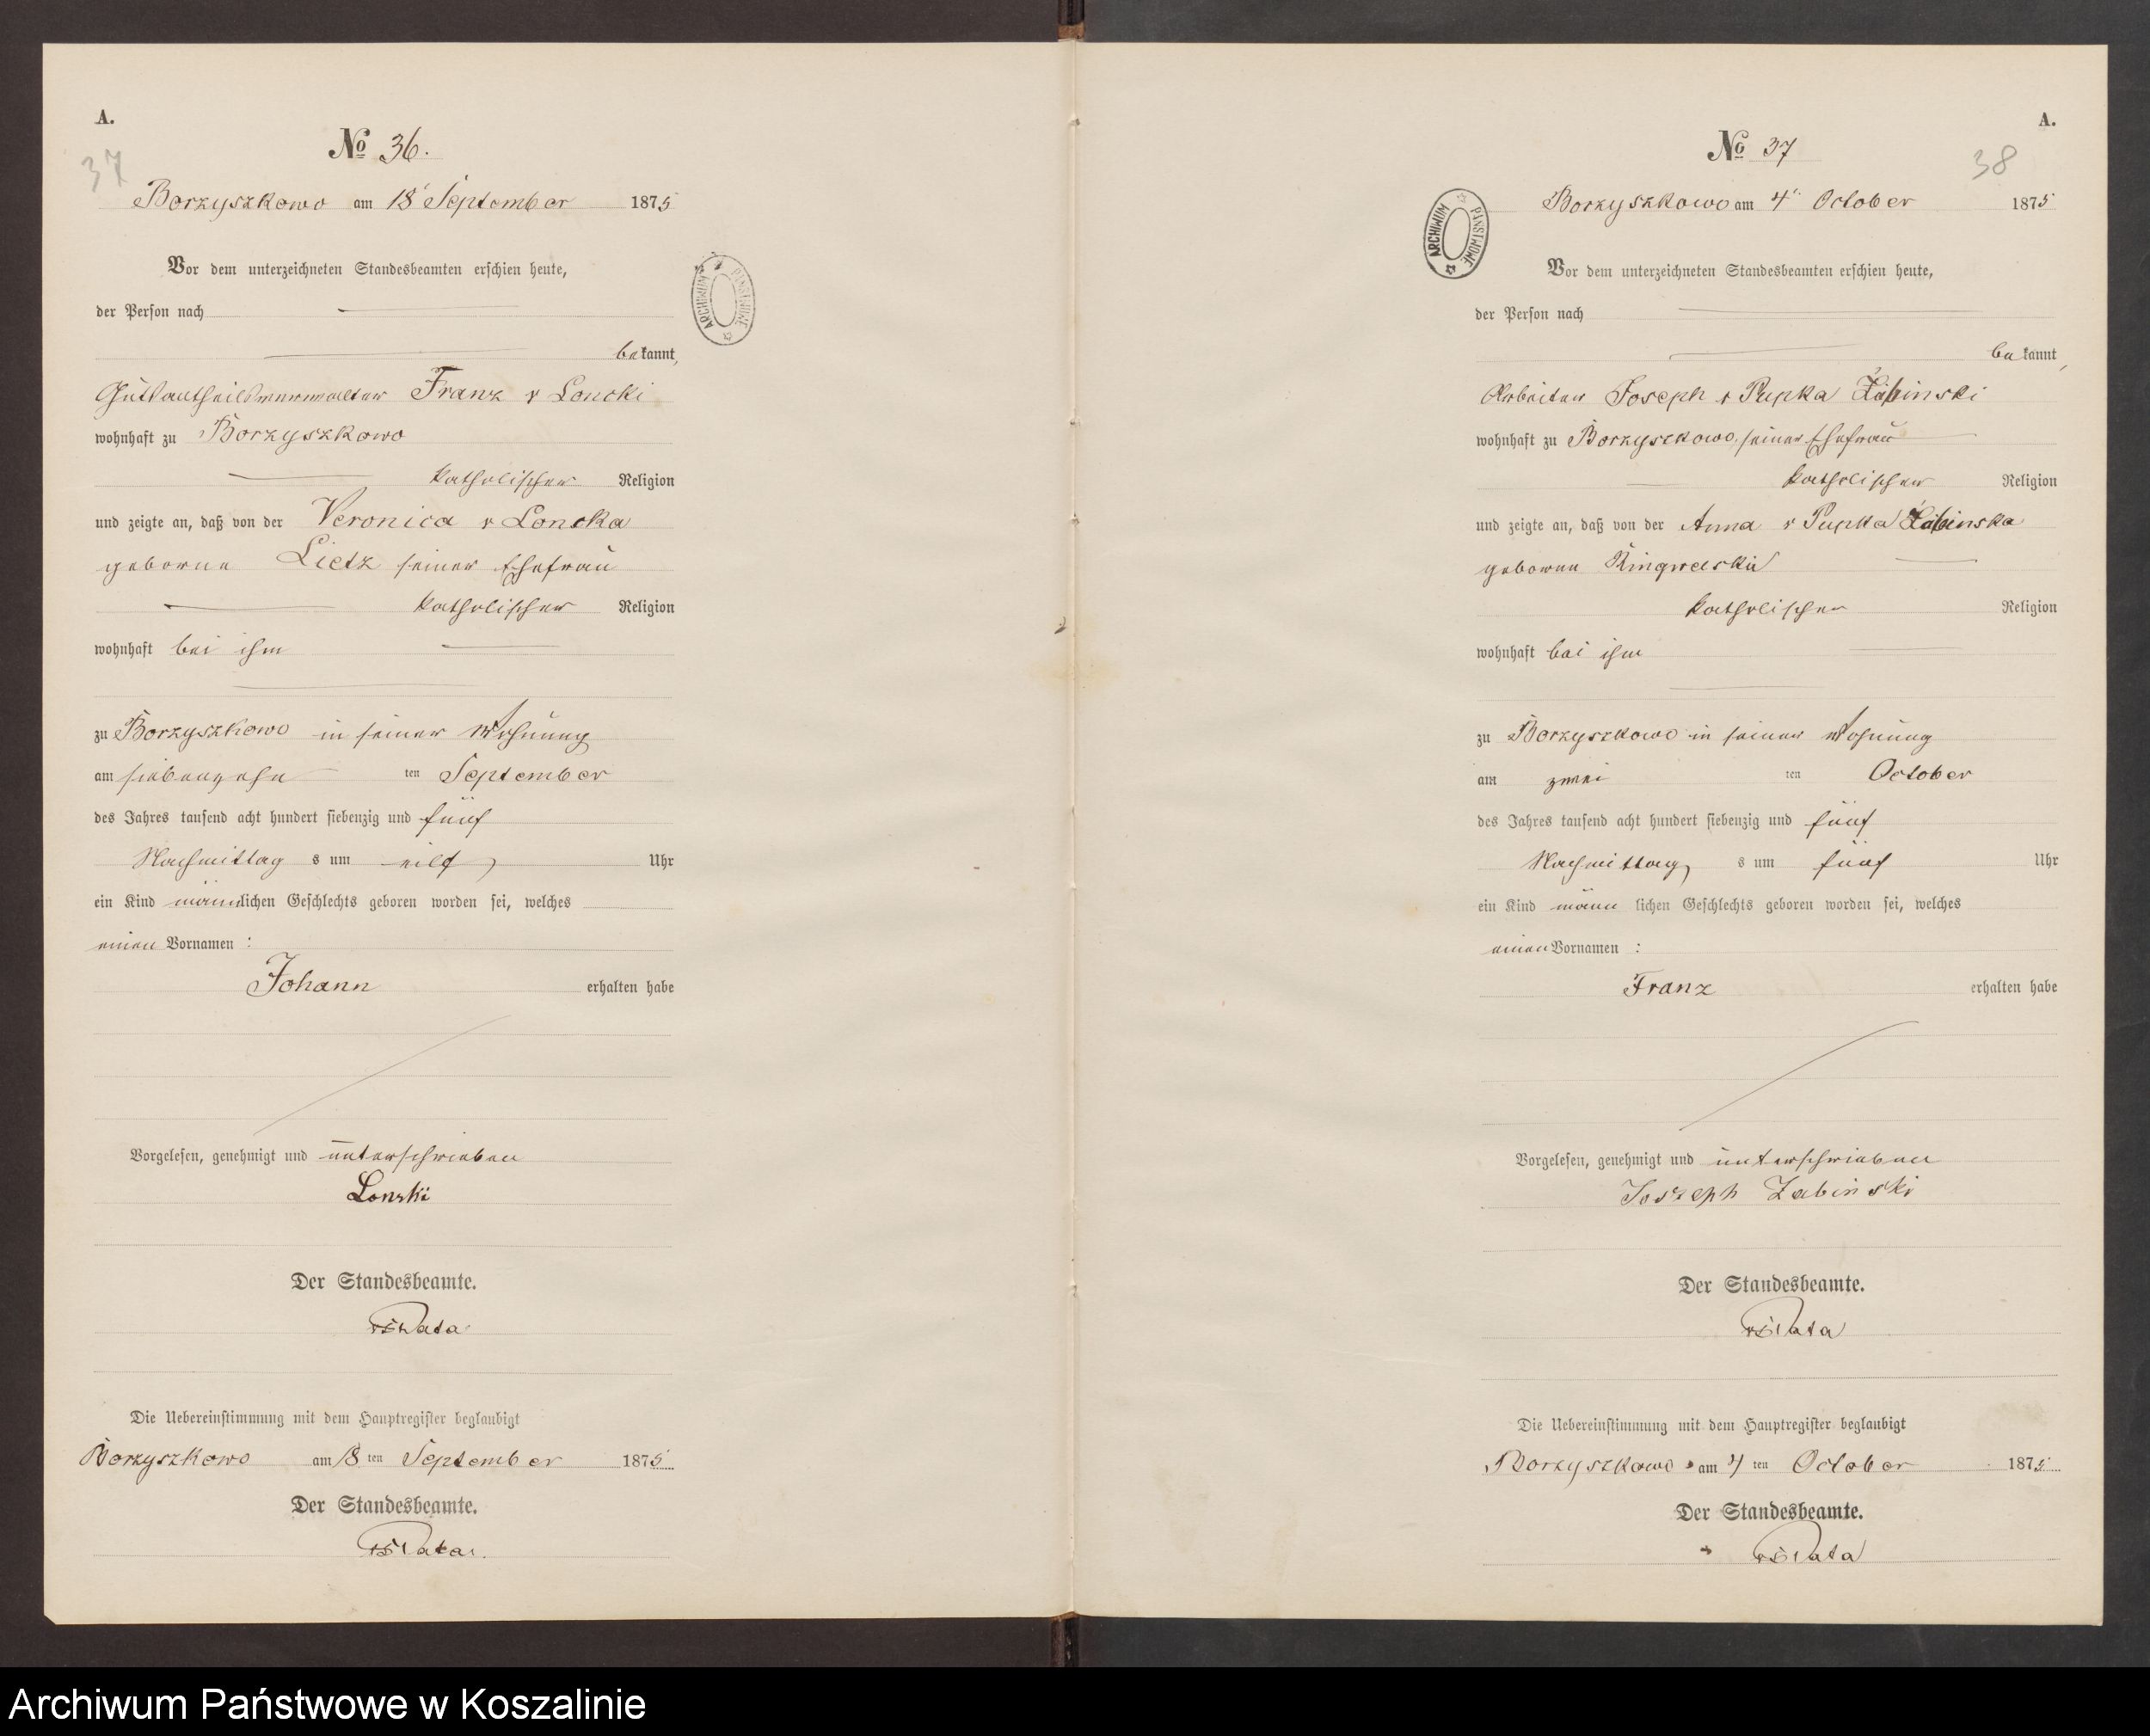 A.
37
№ 36.
Borzyszkowo am 18 September 1875
Vor dem unterzeichneten Standesbeamten erschien heute,
der Person nach
bekannt,
Gutsantheilsverwalter Franz v Loncki
wohnhaft zu Borzyszkowo
katholischer Religion
und zeigte an, daß von der Veronica vLoncka
geborne Lietz seiner Ehefrau
katholischer Religion
wohnhaft bei ihm
zu Borzyszkowo in seiner Wohnung
am siebenzehn ten September
des Jahres tausend acht hundert siebenzig und fünf
Nachmittag s um eilf Uhr
ein Kind männlichen Geschlechts geboren worden sei, welches
einen Vornamen :
Johann erhalten habe
Vorgelesen, genehmigt und unterschrieben
Lonski
Der Standesbeamte.
Die Uebereinstimmung mit dem Hauptregister beglaubigt
Borzyszkowo am 18 ten September 1875
Der Standesbeamte.
ARCHIWUM PAŃSTWOWE
A.
38
№ 37
Borzyszkowo am 4 October 1875
Vor dem unterzeichneten Standesbeamten erschien heute,
der Person nach
bekannt,
Arbeiter Joseph v Pupka Żabinski
wohnhaft zu Borzyszkowo, seiner Ehefrau
katholischer Religion
und zeigte an, daß von der Anna v Pupka Żabinska
geboren
katholischer Religion
wohnhaft bei ihm
zu Borzyszkowo in seiner Wohnung
am zwei ten October
des Jahres tausend acht hundert siebenzig und fünf
Nachmittag s um fünf Uhr
ein Kind männ lichen Geschlechts geboren worden sei, welches
einen Vornamen :
Franz erhalten habe
Vorgelesen, genehmigt und unterschrieben
Joszeph Zabinski
Der Standesbeamte.
Die Uebereinstimmung mit dem Hauptregister beglaubigt
Borzyszkowo am 4 ten October 1875
Der Standesbeamte.
ARCHIWUM PAŃSTWOWE
Archiwum Państwowe w Koszalinie